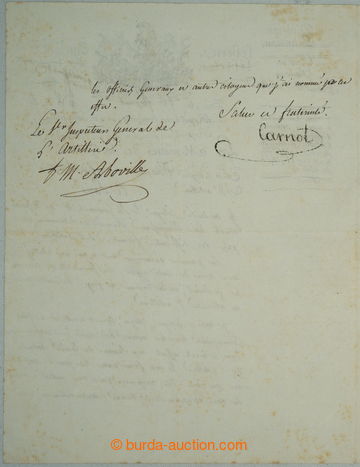 les officiers Generaux et autres citoyens que j'ai nommé par cet
effet.
Salut et fraternité.
Carnot
Le 1er Inspecteur General de
L'Artillerie
F. M. Aboville
© burda-auction.com